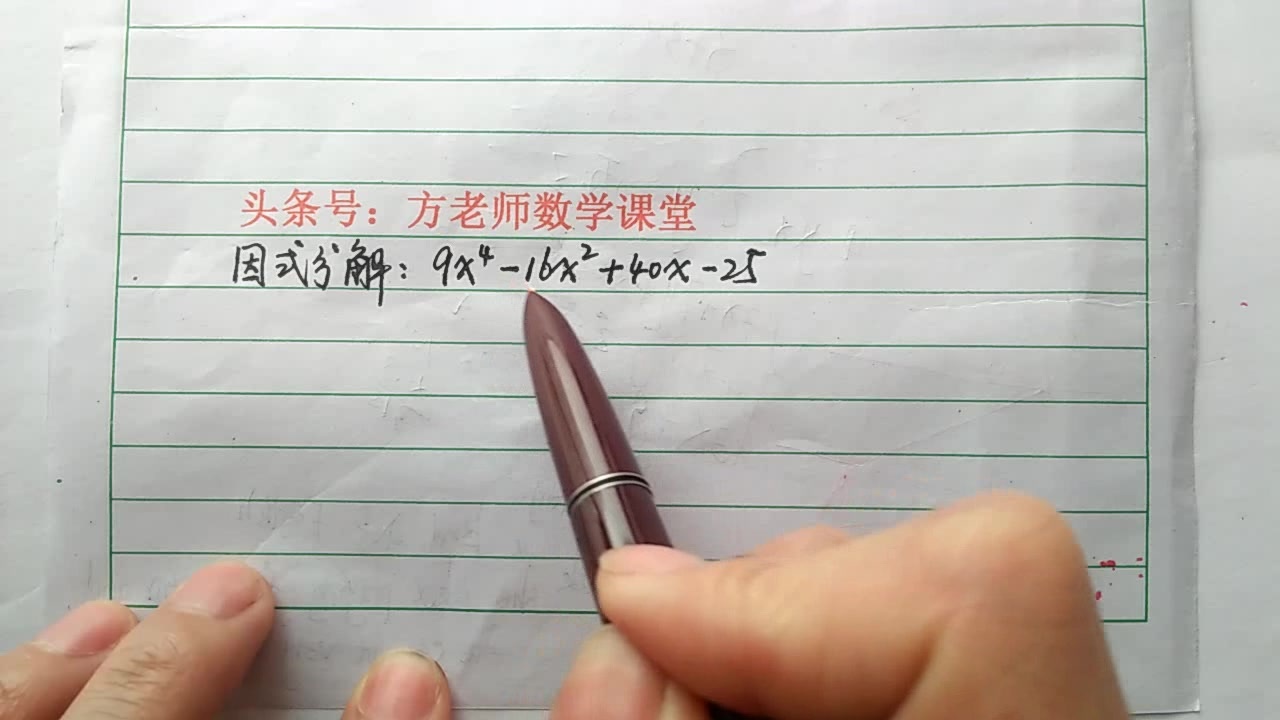 头条号：方老师数学课堂
因式分解：9x⁴-16x²+40x-25